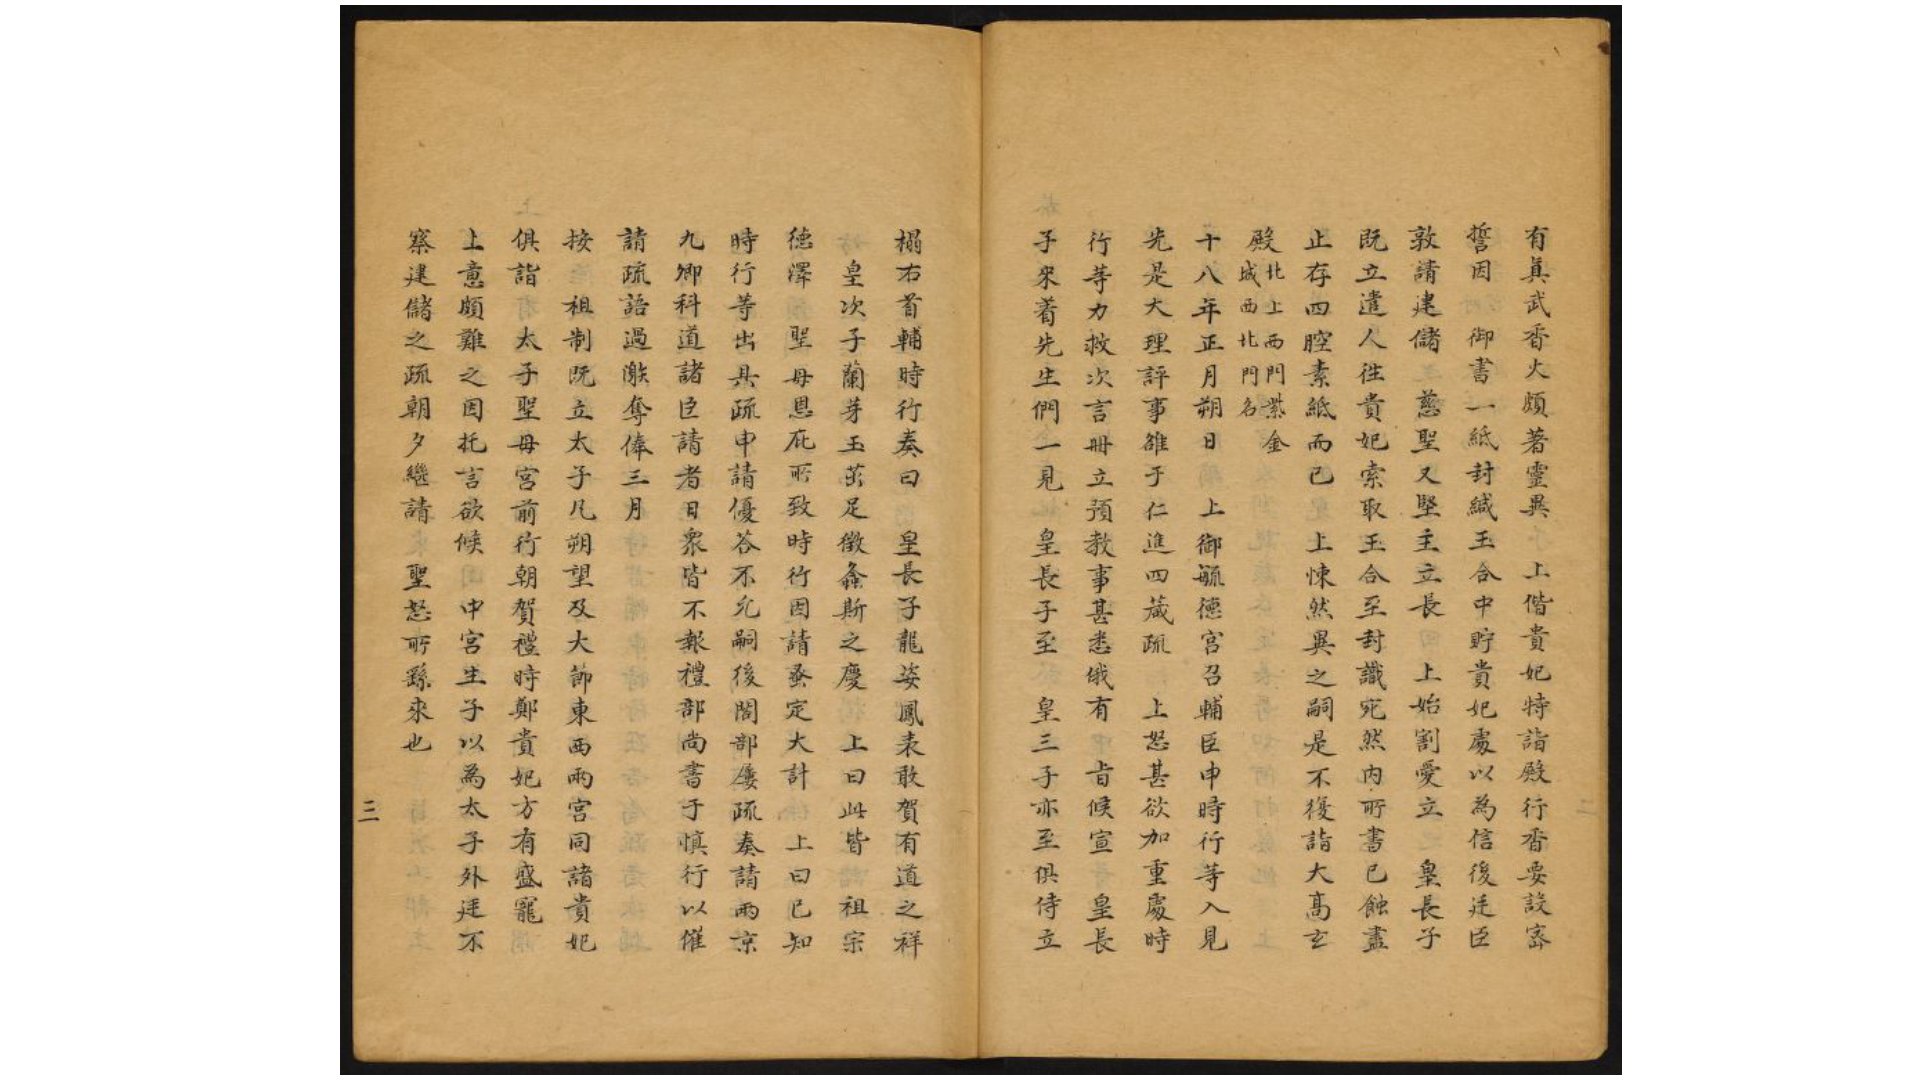 有真武香火頗著靈異　上偕貴妃特詣殿行香要設密
誓因　御書一紙封緘玉合中貯貴妃處以為信後廷臣
敦請建儲　慈聖又堅主立長　上始割愛立　皇長子
既立遣人往貴妃索取玉合至封識宛然内所書已蝕盡
止存四腔素紙而已　上悚然異之嗣是不復詣大高玄
殿北上西門紫金
城西北門名
十八年正月朔日　上御毓德宮召輔臣申時行等入見
先是大理評事雒于仁進四箴疏　上怒甚欲加重處時
行等力救次言冊立預教事甚悉俄有旨候宣　皇長
子來着先生們一見　皇長子至　皇三子亦至俱侍立
榻右首輔時行奏曰　皇長子龍姿鳳表敢賀有道之祥
皇次子蘭芽玉茁足徵螽斯之慶　上曰此皆　祖宗
德澤　聖母恩庇所致時行因請蚤定大計　上曰已知
時行等出具疏申請優荅不允嗣後閣部屢疏奏請兩京
九卿科道諸臣請者日衆皆不報禮部尚書于慎行以催
請疏語過激奪俸三月
按　祖制既立太子凡朔望及大節東西兩宮同諸貴妃
俱詣　太子聖母宮前行朝賀禮時鄭貴妃方有盛寵
上意頗難之因托言欲候　中宮生子以為太子外廷不
察建儲之疏朝夕繼請　聖怒所繇來也
三